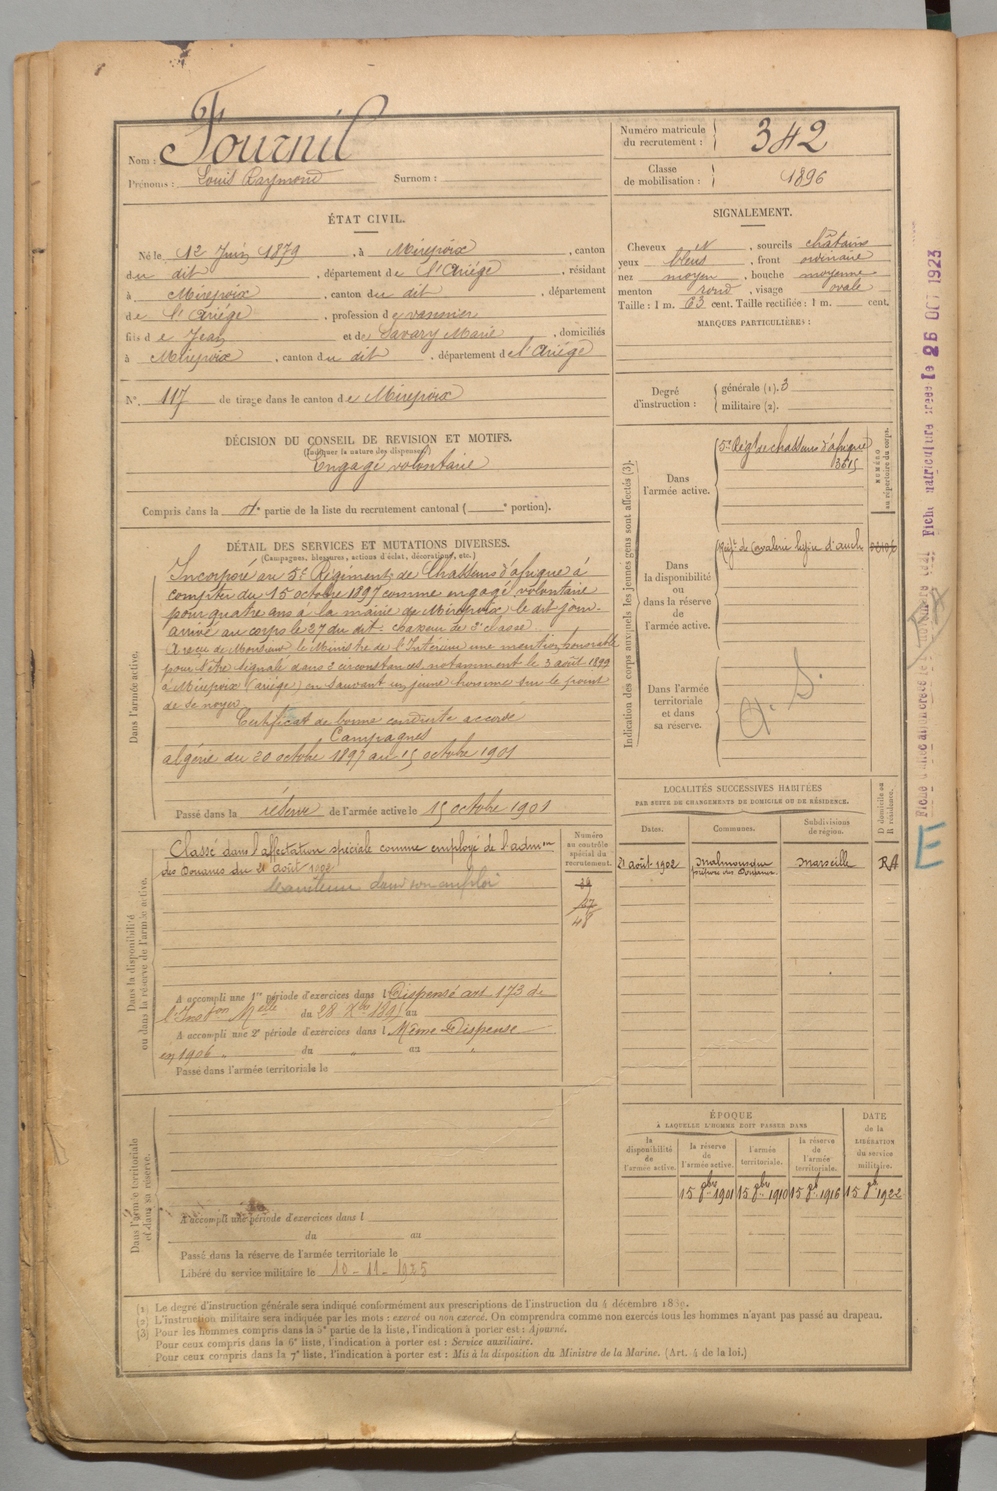 Nom : Fournil
Prénoms : Louis Raymond Surnom :
ÉTAT CIVIL.
Né le 12 Juin 1879, à Mirepoix, canton
du dit, département de l'Ariége, résidant
à Mirepoix, canton du dit, département
de l'Ariége, profession de vannier
fils de Jean et de Savary Marie, domiciliés
à Mirepoix, canton du dit, département de l'Ariége
N°. 117 de tirage dans le canton de Mirepoix
DÉCISION DU CONSEIL DE REVISION ET MOTIFS.
(Indiquer la nature des dispenses.)
Engagé volontaire
Compris dans la partie de la liste du recrutement cantonal ( portion).
DÉTAIL DES SERVICES ET MUTATIONS DIVERSES.
(Campagnes, blessures, actions d'éclat, décorations, etc.)
Dans l'armée active.
Incorporé au 5e Régiment de Chasseurs d'afrique à
compter du 15 octobre 1897 comme engagé volontaire
pour quatre ans à la mairie de Mirepoix le dit jour.
arrivé au corps le 27 du dit. chasseur de 2e classe.
A reçu de Monsieur le Ministre de l'Intérieur une mention honorable
pour s'être signalé dans 2 circonstances notamment le 3 août 1899
à Mirepoix (ariège) en sauvant un jeune homme sur le point
de se noyer
Certificat de bonne conduite accordé
Campagnes
algérie du 20 octobre 1897 au 15 octobre 1901
Passé dans la réserve de l'armée active le 15 octobre 1901
Dans la disponibilité
ou dans la réserve de l'armée active.
Classé dans l'affectation spéciale comme employé de l'admon
des Douanes du 21 août 1902
Maintenu dans son emploi
Numéro
au contrôle
spécial du
recrutement.
48
A accompli une 1re période d'exercices dans l Dispensé art 173 de
l'Inston Melle du 28 Xbre 1895 au
A accompli une 2e période d'exercices dans l Même Dispense
en 1906 du au
Passé dans l'armée territoriale le
Dans l'armée territoriale
et dans sa réserve.
A accompli une période d'exercices dans l
du au
Passé dans la réserve de l'armée territoriale le
Libéré du service militaire le 10-11-1925
Numéro matricule
du recrutement : 342
Classe
de mobilisation : 1896
SIGNALEMENT.
Cheveux N, sourcils châtains
yeux bleus, front ordinaire
nez moyen, bouche moyenne
menton rond, visage ovale
Taille : 1 m. 63 cent. Taille rectifiée : 1 m. cent.
MARQUES PARTICULIÈRES :
Degré
d'instruction :
générale (1). 3
militaire (2).
Indication des corps auxquels les jeunes gens sont affectés (3).
Dans
l'armée active.
5e Régt de chasseurs d'afrique
3615
NUMÉRO
au répertoire du corps.
Dans
la disponibilité
ou
dans la réserve
de
l'armée active.
Régt de Cavalerie légère d'auch
Dans l'armée
territoriale
et dans
sa réserve.
a. S.
LOCALITÉS SUCCESSIVES HABITÉES
PAR SUITE DE CHANGEMENTS DE DOMICILE OU DE RÉSIDENCE.
Dates. Communes. Subdivisions
de région. D domicile ou
R résidence.
21 août 1902 Malmousque Marseille RA
préposé des Douanes
ÉPOQUE
À LAQUELLE L'HOMME DOIT PASSER DANS
la
disponibilité
de
l'armée active.
la réserve
de
l'armée active.
l'armée
territoriale.
la réserve
de
l'armée
territoriale.
DATE
de la
LIBÉRATION
du service
militaire.
15 8bre 1901 15 8bre 1910 15 8re 1916 15 8re 1922
(1) Le degré d'instruction générale sera indiqué conformément aux prescriptions de l'instruction du 4 décembre 1889.
(2) L'instruction militaire sera indiquée par les mots : exercé ou non exercé. On comprendra comme non exercés tous les hommes n'ayant pas passé au drapeau.
(3) Pour les hommes compris dans la 5e partie de la liste, l'indication à porter est : Ajourné.
Pour ceux compris dans la 6e liste, l'indication à porter est : Service auxiliaire.
Pour ceux compris dans la 7e liste, l'indication à porter est : Mis à la disposition du Ministre de la Marine. (Art. 4 de la loi.)
Fiche matriculaire créée le 26 OCT 1923
E